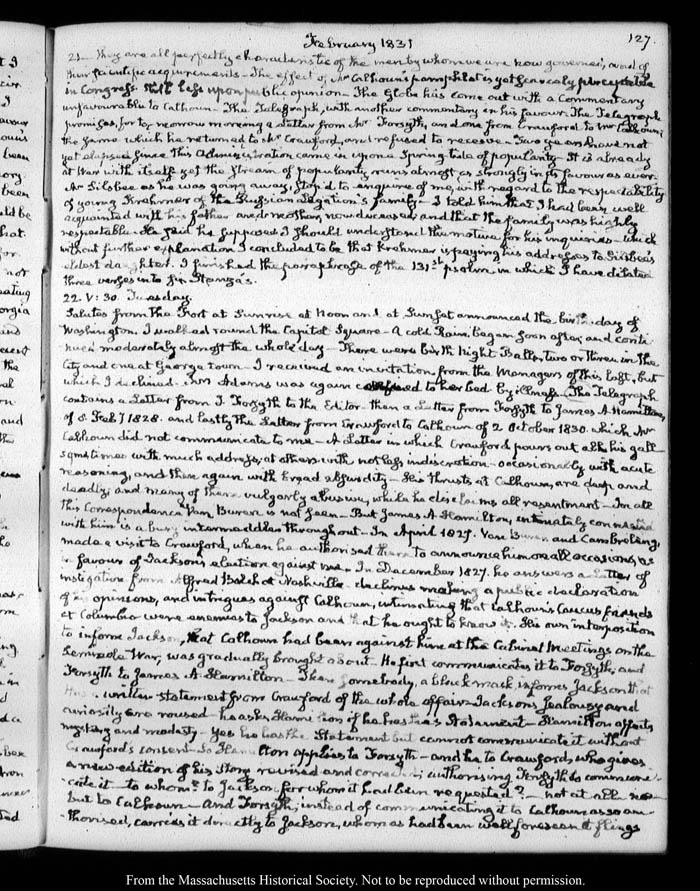 127.
February 1831
21. They are all perfectly characteristic of the men by whom we are now governed, and of
their scientific acquirements — The effect of Mr Calhoun's pamphlet is yet scarcely perceptible
in Congress. Still less upon public opinion — The Globe has come out with a Commentary
unfavourable to Calhoun — The Telegraph, with another commentary in his favour. The Telegraph
promises, for to-morrow morning a Letter from Mr Forsyth, and one from Crawford to Mr Calhoun;
the same which he returned to Mr Crawford, and refused to receive. Two years have not
yet elapsed since this Administration came in upon a Spring tide of popularity. It is already
at War with itself yet the stream of popularity runs almost as strongly in its favour as ever.
Mr Silsbee as he was going away, stop'd to enquire of me, with regard to the respectability
of young Krehmer of the Russian Legation's family — I told him that I had been well
acquainted with his father and mother, now deceased; and that the family was highly
respectable. He said he supposed I should understand the motive for his inquiries — which
without further explanation I concluded to be that Krehmer is paying his addresses to Silsbee's
eldest daughter. I finished the paraphrase of the 131st psalm, in which I have dilated
three verses into six Stanza's.
22. V: 30. Tuesday.
Salutes from the Fort at Sunrise at Noon and at Sunset announced the birth-day of
Washington. I walked round the Capitol Square — A cold Rain began soon after, and conti-
nued moderately almost the whole day — There were birth Night Balls, two or three in the
City and one at George town — I received an invitation from the Managers of this last, but
which I declined. Mrs Adams was again confined to her bed by illness. The Telegraph
contains a Letter from J. Forsyth to the Editor — then a Letter from Forsyth to James A. Hamilton,
of 8. Feby 1828. and lastly the Letter from Crawford to Calhoun of 2 October 1830. which Mr
Calhoun did not communicate to me — A Letter in which Crawford pours out all his gall
sometimes with much address, at others with no less indiscretion — occasionally with acute
reasoning, and then again with broad absurdity — His thrusts at Calhoun, are deep and
deadly; and many of them vulgarly abusive, while he disclaims all resentment — In all
this Correspondence Van Buren is not seen — But James A. Hamilton, intimately connected
with him is a busy intermeddler throughout — In April 1827. Van Buren and Cambreleng,
made a visit to Crawford, when he authorised them to announce him on all occasions, as
in favour of Jackson's election against me — In December 1827. he answers a Letter of
instigation from Alfred Balch at Nashville — declines making a public declaration
of his opinions, and intrigues against Calhoun, intimating that Calhoun's Caucus friends
at Columbia were enemies to Jackson and that he ought to know it. His own interposition
to inform Jackson, that Calhoun had been against him at the Cabinet Meetings on the
Seminole War, was gradually brought about. He first communicates it to Forsyth, and
Forsyth to James A. Hamilton — Then somebody, a black mask, informs Jackson that
written statement from Crawford of the whole affair — Jackson's jealousy and
curiosity are roused — he asks Hamilton if he has this Statement — Hamilton affects
mystery and modesty — Yes he has the Statement but cannot communicate it without
Crawford's consent — So Hamilton applies to Forsyth — and he to Crawford, who gives
a new edition of his Story revised and corrected; authorising Forsyth to communi-
cate it — to whom? to Jackson, for whom it had been requested? not at all no —
but to Calhoun — And Forsyth, instead of communicating it to Calhoun as so au-
thorised, carries it directly to Jackson, who as had been well foreseen flings
From the Massachusetts Historical Society. Not to be reproduced without permission.